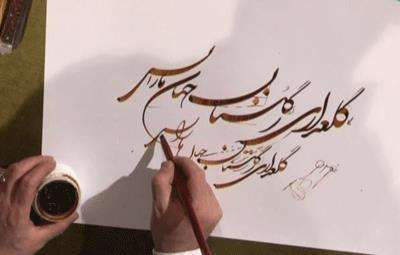 گلعذاری ز گلستان جهان ما را بس
گلعذاری ز گلستان جهان ما را بس